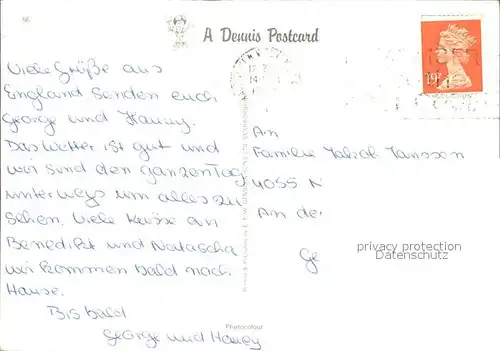 56
A Dennis Postcard
19
Viele Grüße aus
England senden euch
George und Hanny.
Das Wetter ist gut und
wir sind den ganzen Tag
unterwegs um alles zu
sehen. Viele Küsse an
Benedikt und Natascha
wir kommen bald nach
Hause.
Bis bald
George und Haney
An
Familie Jakob Janssen
4055 N
An de
Ge
privacy protection
Datenschutz
Photocolour